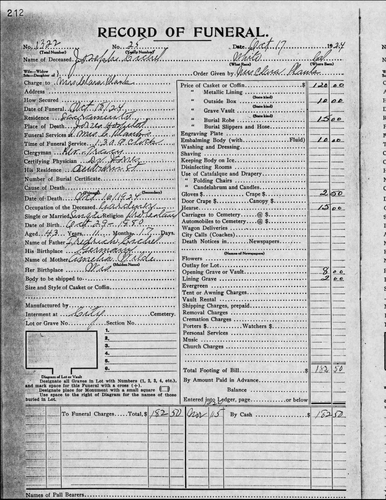 212
RECORD OF FUNERAL.
No. 1327 No. 21 Date Oct 17 1924
(Total Number) (Yearly Number)
Name of Deceased Joseph White Cal
(What Race) (Where Born)
Wife—Widow
Son—Daughter of Order Given by Mrs Clara
Charge to Mrs Clara
Address
How Secured
Date of Funeral Oct 18/24
Residence Sacramento
Place of Death
Funeral Services at
Time of Service 1:30 o'clock
Clergyman Rev.
Certifying Physician Dr
His Residence
Number of Burial Certificate
Cause of Death
Date of Death Oct 16, 1924
Occupation of the Deceased Gardener
Single or Married Single Religion Protestant
Date of Birth Oct 29 - 1880
Aged 43 Years 11 Months Days
Name of Father Fredrich
His Birthplace Germany
Name of Mother Amelia Wilde
Her Birthplace
Body to be shipped to
Size and Style of Casket or Coffin
Manufactured by
Interment at City Cemetery.
Lot or Grave No. Section No.
1
2
3
4
5
6
7
8
Diagram of Lot or Vault
Designate all Graves in Lot with Numbers (1, 2, 3, 4, etc.),
and mark space for this Funeral with a cross (+).
Designate place for Monument with a small square
Use the space to right of Diagram for the names of those
buried in Lot.
Price of Casket or Coffin $ 120 00
" Metallic Lining
" Outside Box 10 00
" Grave Vault
" Burial Robe 15 00
" Burial Slippers and Hose
Engraving Plate
Embalming Body (with Fluid) 10 00
Washing and Dressing
Shaving
Keeping Body on Ice
Disinfecting Rooms
Use of Catafalque and Drapery
" Folding Chairs
" Candelabrum and Candles
Gloves $ Crape $ 2 50
Door Crape Canopy $
Hearse 15 00
Carriages to Cemetery @ $
Automobiles to Cemetery @ $
Wagon Deliveries
City Calls (Coaches)
Death Notices in Newspapers
(Names of Newspapers)
Flowers
Outlay for Lot
Opening Grave or Vault 8 00
Lining Grave 2 00
Evergreen
Tent or Awning Charges
Vault Rental
Shipping Charges, prepaid
Removal Charges
Cremation Charges
Porters $ Watchers $
Personal Services
Music
Church Charges
Total Footing of Bill $ 182 50
By Amount Paid in Advance
Balance
Entered into Ledger, page or below
To Funeral Charges, Total, $ 182 50 Nov 15 By Cash 182 50
Names of Pall Bearers